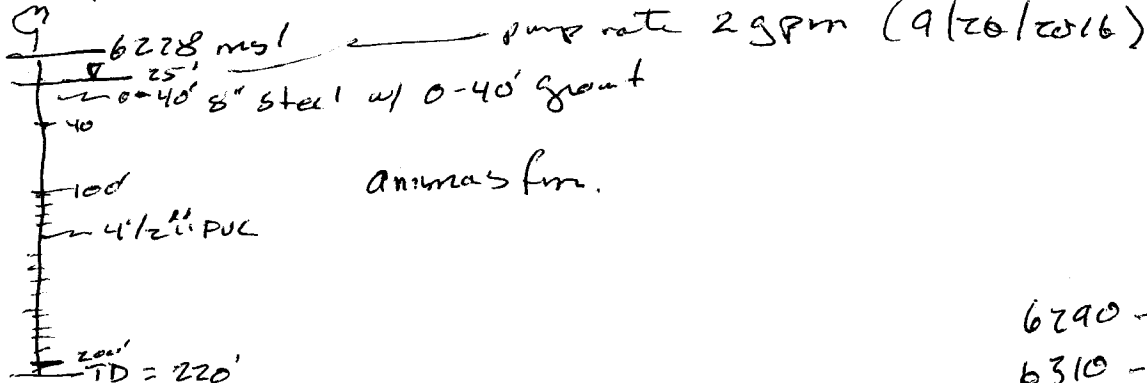 6228 msl pump rate 2 gpm (9/20/2016)
25'
0-40' 8" steel w/ 0-40' grout
40
100'
animas fm.
4 1/2" PVC
6290 -
200'
TD = 220'
6310 -